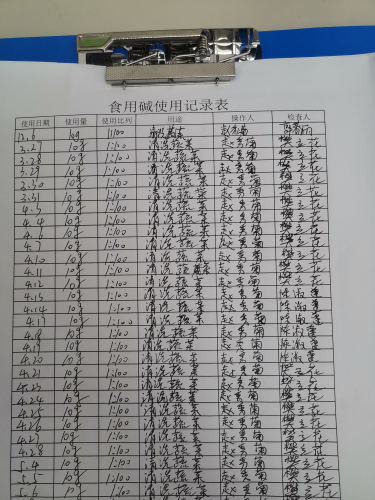 食用碱使用记录表
使用日期 使用量 使用比列 用途 操作人 检查人
12.6 10g 1:100
3.27 10g 1:100 清洗蔬菜 赵秀菊 樊立花
3.28 10g 1:100 清洗蔬菜 赵秀菊 樊立花
3.29 10g 1:100 清洗蔬菜 赵秀菊 樊立花
3.30 10g 1:100 清洗蔬菜 赵秀菊 樊立花
3.31 10g 1:100 清洗蔬菜 赵秀菊 樊立花
4.3 10g 1:100 清洗蔬菜 赵秀菊 樊立花
4.4 10g 1:100 清洗蔬菜 赵秀菊 樊立花
4.6 10g 1:100 清洗蔬菜 赵秀菊 樊立花
4.7 10g 1:100 清洗蔬菜 赵秀菊 樊立花
4.10 10g 1:100 清洗蔬菜 赵秀菊 樊立花
4.11 10g 1:100 清洗蔬菜 赵秀菊 樊立花
4.12 10g 1:100 清洗蔬菜 赵秀菊 樊立花
4.13 10g 1:100 清洗蔬菜 赵秀菊
4.14 10g 1:100 清洗蔬菜 赵秀菊
4.17 10g 1:100 清洗蔬菜 赵秀菊
4.18 10g 1:100 清洗蔬菜 赵秀菊
4.19 10g 1:100 清洗蔬菜 赵秀菊
4.20 10g 1:100 清洗蔬菜 赵秀菊
4.21 10g 1:100 清洗蔬菜 赵秀菊 樊立花
4.23 10g 1:100 清洗蔬菜 赵秀菊 樊立花
4.24 10g 1:100 清洗蔬菜 赵秀菊 樊立花
4.25 10g 1:100 清洗蔬菜 赵秀菊 樊立花
4.26 10g 1:100 清洗蔬菜 赵秀菊 樊立花
4.27 10g 1:100 清洗蔬菜 赵秀菊 樊立花
4.28 10g 1:100 清洗蔬菜 赵秀菊 樊立花
5.4 10g 1:100 清洗蔬菜 赵秀菊 樊立花
5.5 10g 1:100 清洗蔬菜 赵秀菊 樊立花
5.6 10g 1:100 清洗蔬菜 赵秀菊 樊立花